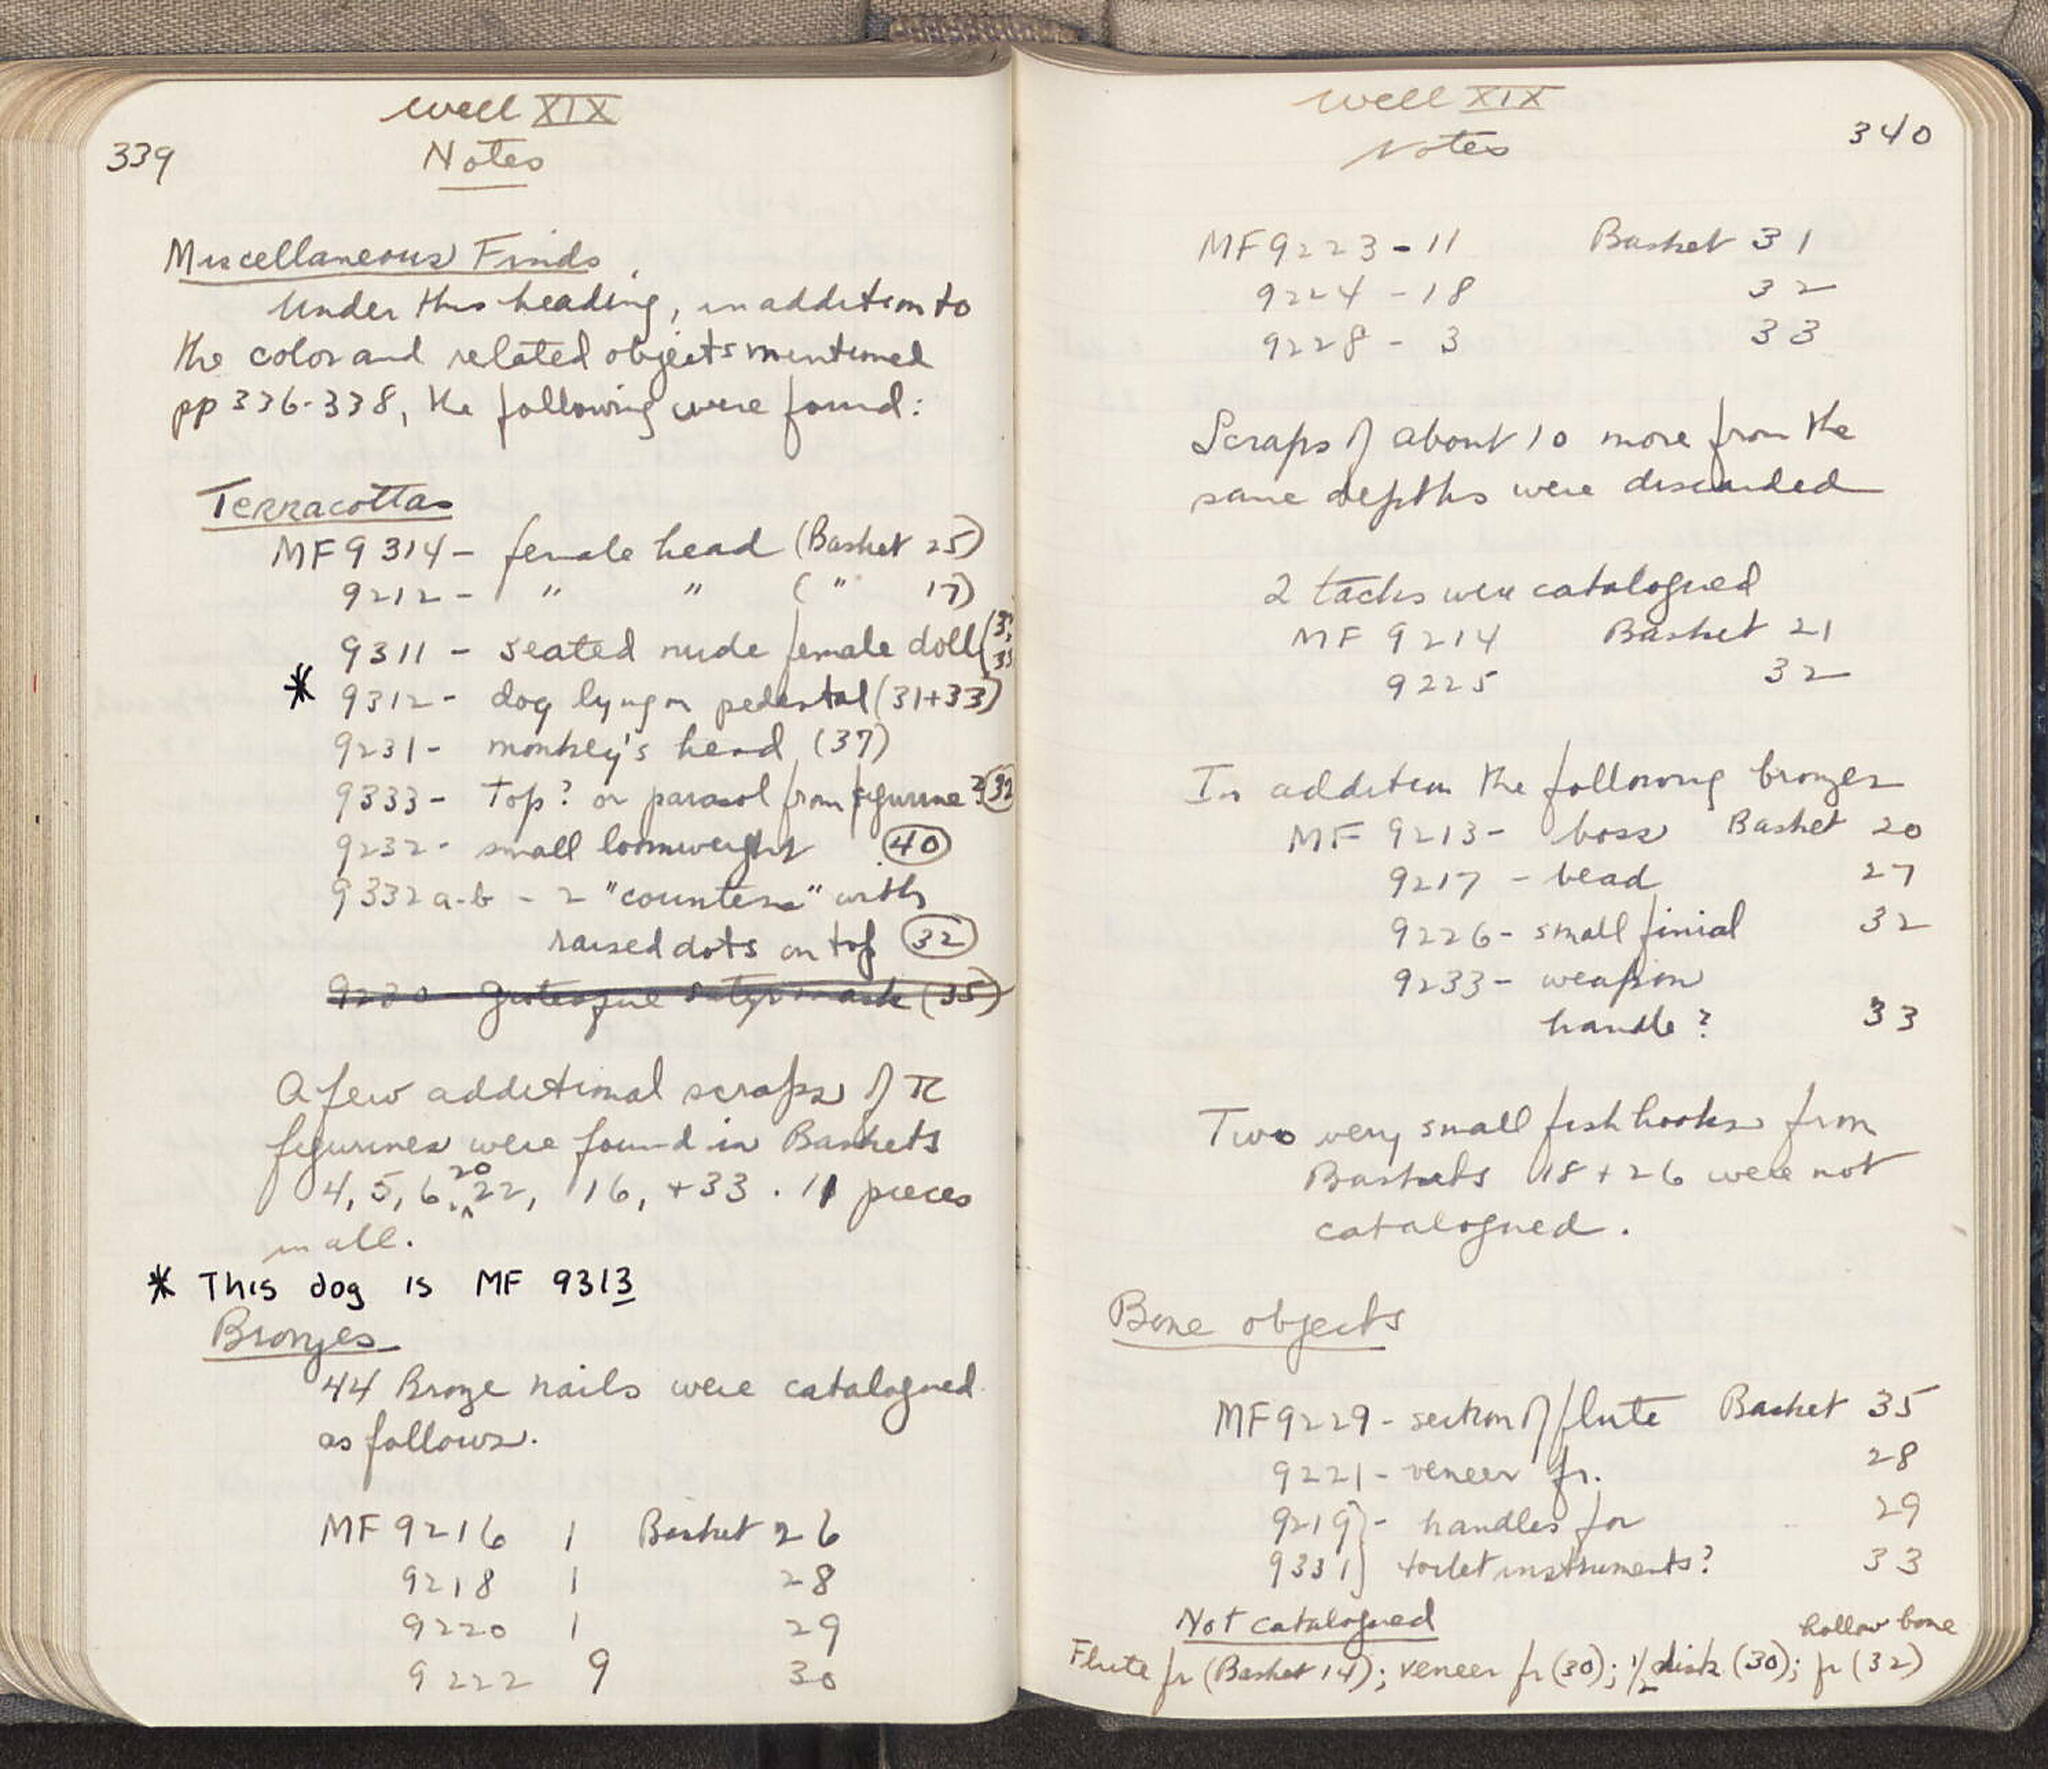 Well XIX
339
Notes
Miscellaneous Finds
Under this heading, in addition to
the color and related objects mentioned
pp 336-338, the following were found:
Terracottas
MF 9314 - female head (Basket 25)
9212 - " " ( " 17)
9311 - seated nude female doll
* 9312 - dog lying on pedestal (31+33)
9231 - monkey's head (37)
9333 - Top? or parasol from figurine? (32
9232 - small loomweight (40)
9332 a-b - 2 "counters" with
raised dots on top (32)
9230 - grotesque satyr mask (35)
A few additional scraps of TC
figurines were found in Baskets
4, 5, 6, 20 22, 16, + 33. 11 pieces
in all.
* This dog is MF 9313
Bronzes
44 Bronze nails were catalogued
as follows.
MF 9216 1 Basket 26
9218 1 28
9220 1 29
9222 9 30
Well XIX
340
Notes
MF 9223 - 11 Basket 31
9224 - 18 32
9228 - 3 33
Scraps of about 10 more from the
same depths were discarded
2 tacks were catalogued
MF 9214 Basket 21
9225 32
In addition the following bronzes
MF 9213 - boss Basket 20
9217 - bead 27
9226 - small finial 32
9233 - weapon
handle? 33
Two very small fish hooks from
Baskets 18 + 26 were not
catalogued.
Bone objects
MF 9229 - section of flute Basket 35
9221 - veneer fr. 28
9219} - handles for 29
9331} toilet instruments? 33
Not catalogued
hollow bone
Flute fr (Basket 14); veneer fr (30); 1/2 disk (30); fr (32)